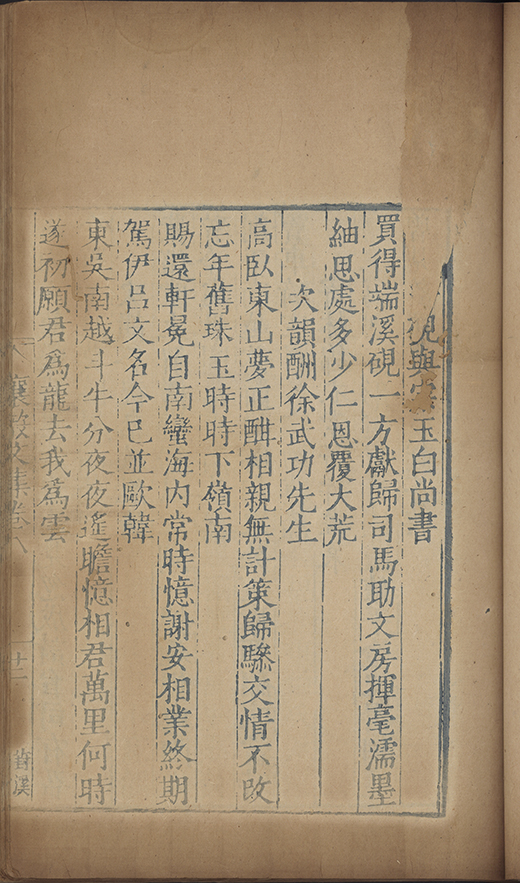 硯與玉白尚書
買得端溪硯一方獻歸司馬助文房揮毫濡墨
紬思處多少仁恩覆大荒
次韻酬徐武功先生
高臥東山夢正酣相親無計策歸驂交情不改
忘年舊珠玉時時下嶺南
賜還軒冕自南蠻海内常時憶謝安相業終期
駕伊吕文名今已並歐韓
東吳南越斗牛分夜夜遙瞻憶相君萬里何時
遂初願君爲龍去我爲雲
襄毅文集卷八
廿一